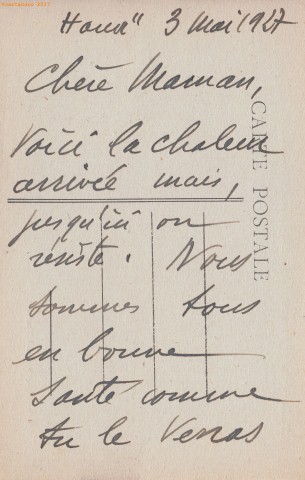 3 Mai 1927
Chère Maman,
Voici la chaleur
arrivée mais,
jusqu'ici on
résiste. Nous
sommes tous
en bonne
Santé comme
tu le verras
CARTE POSTALE